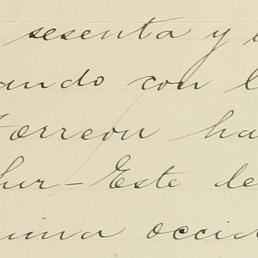 sesenta y
ando con l
Torreon ha
Sur-Este de
uina occid